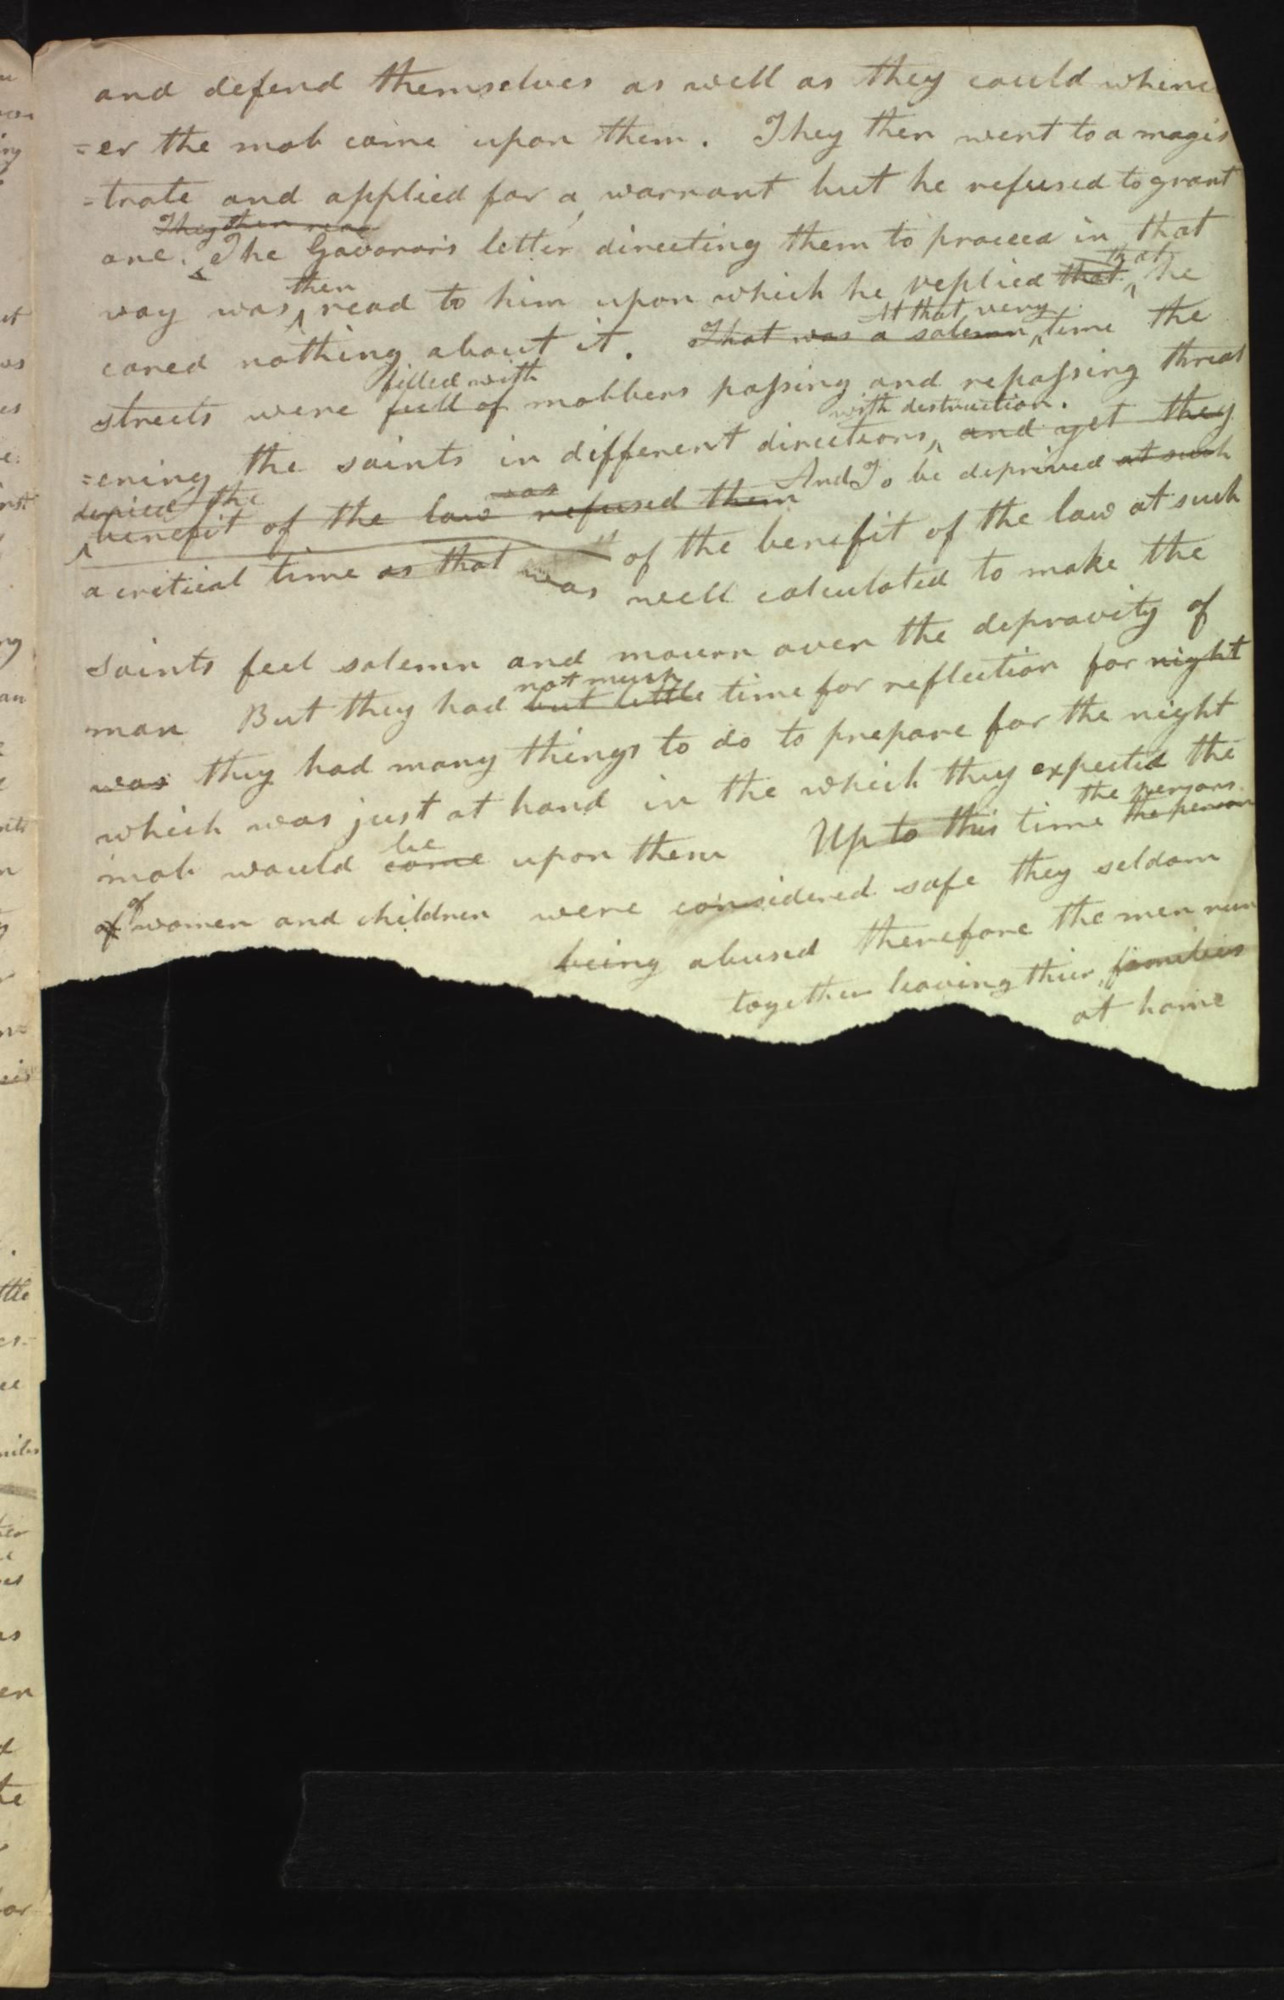 and defend themselves as well as they could whene
=er the mob came upon them. They then went to a magis
=trate and applied for a warrant but he refused to grant
They then read
one. The Gavoror's letter directing them to proceed in that
then that
way was read to him upon which he replied that he
At that very
cared nothing about it. That was a solemn time the
filled with
streets were full of mobbers passing and repassing threat
with destruction.
=ening the saints in different directions, and yet they
denied the was And To be deprived at such
benefit of the law refused them
of the benefit of the law at such
a critical time as that was well calculated to make the
saints feel solemn and mourn over the depravity of
not much
man But they had but little time for reflection for night
was they had many things to do to prepare for the night
which was just at hand in the which they expected the
be the persons
mob would come upon them Up to this time the person
of
of women and children were considered safe they seldom
being abused therefore the men run
together leaving thier families
at home